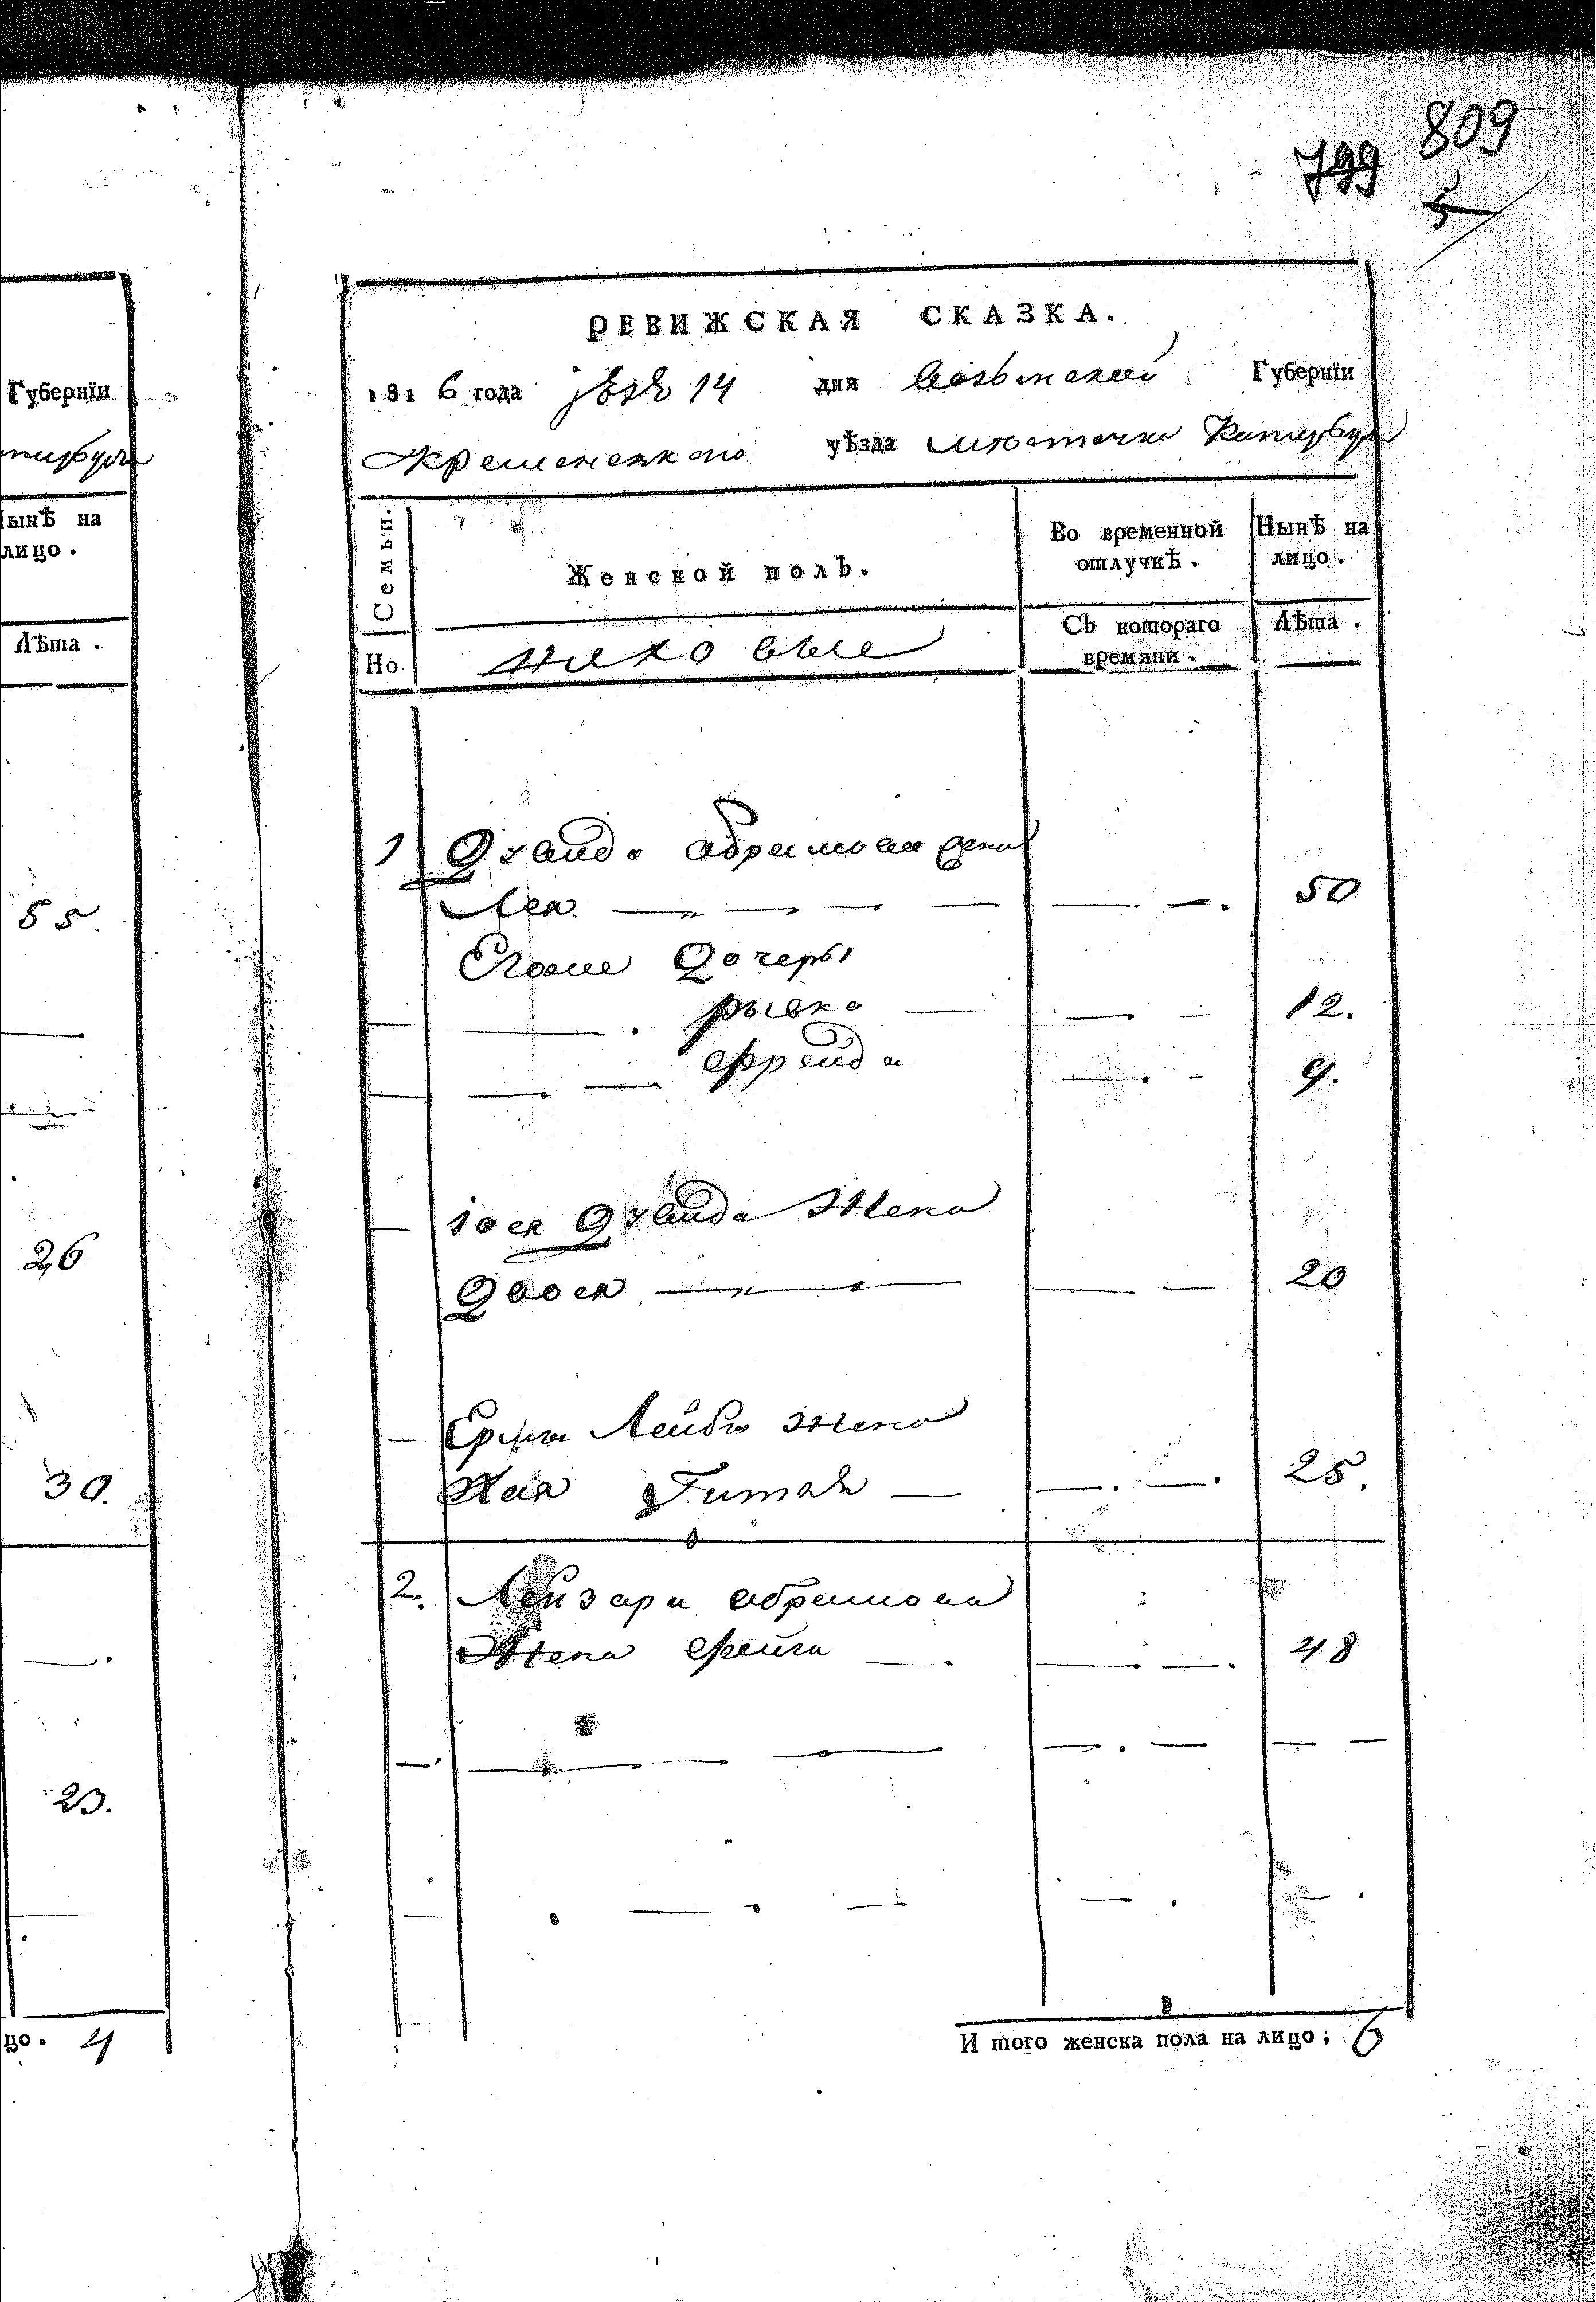 809
799
5
РЕВИЖСКАЯ СКАЗКА.
1816 года 14 дня Волынской Губернїи
Кременецкого уѣзда местечка Катирбург
Губернїи
Нынѣ на лицо.
Лѣта.
85
26
30.
23.
цо. 4
Семьи.
Но.
Женской полъ.
Во временной отлучкѣ.
Съ котораго времяни.
Нынѣ на лицо.
Лѣта.
1 Абрамова жена
Лея 50
Его же Дочеры
рывка 12.
Фрейда 9.
Жена
Двося 20
Лейбы жена
Хая Гитля 25.
2. Лейзара Абрамова
Жена Фейга 48
И того женска пола на лицо: 6